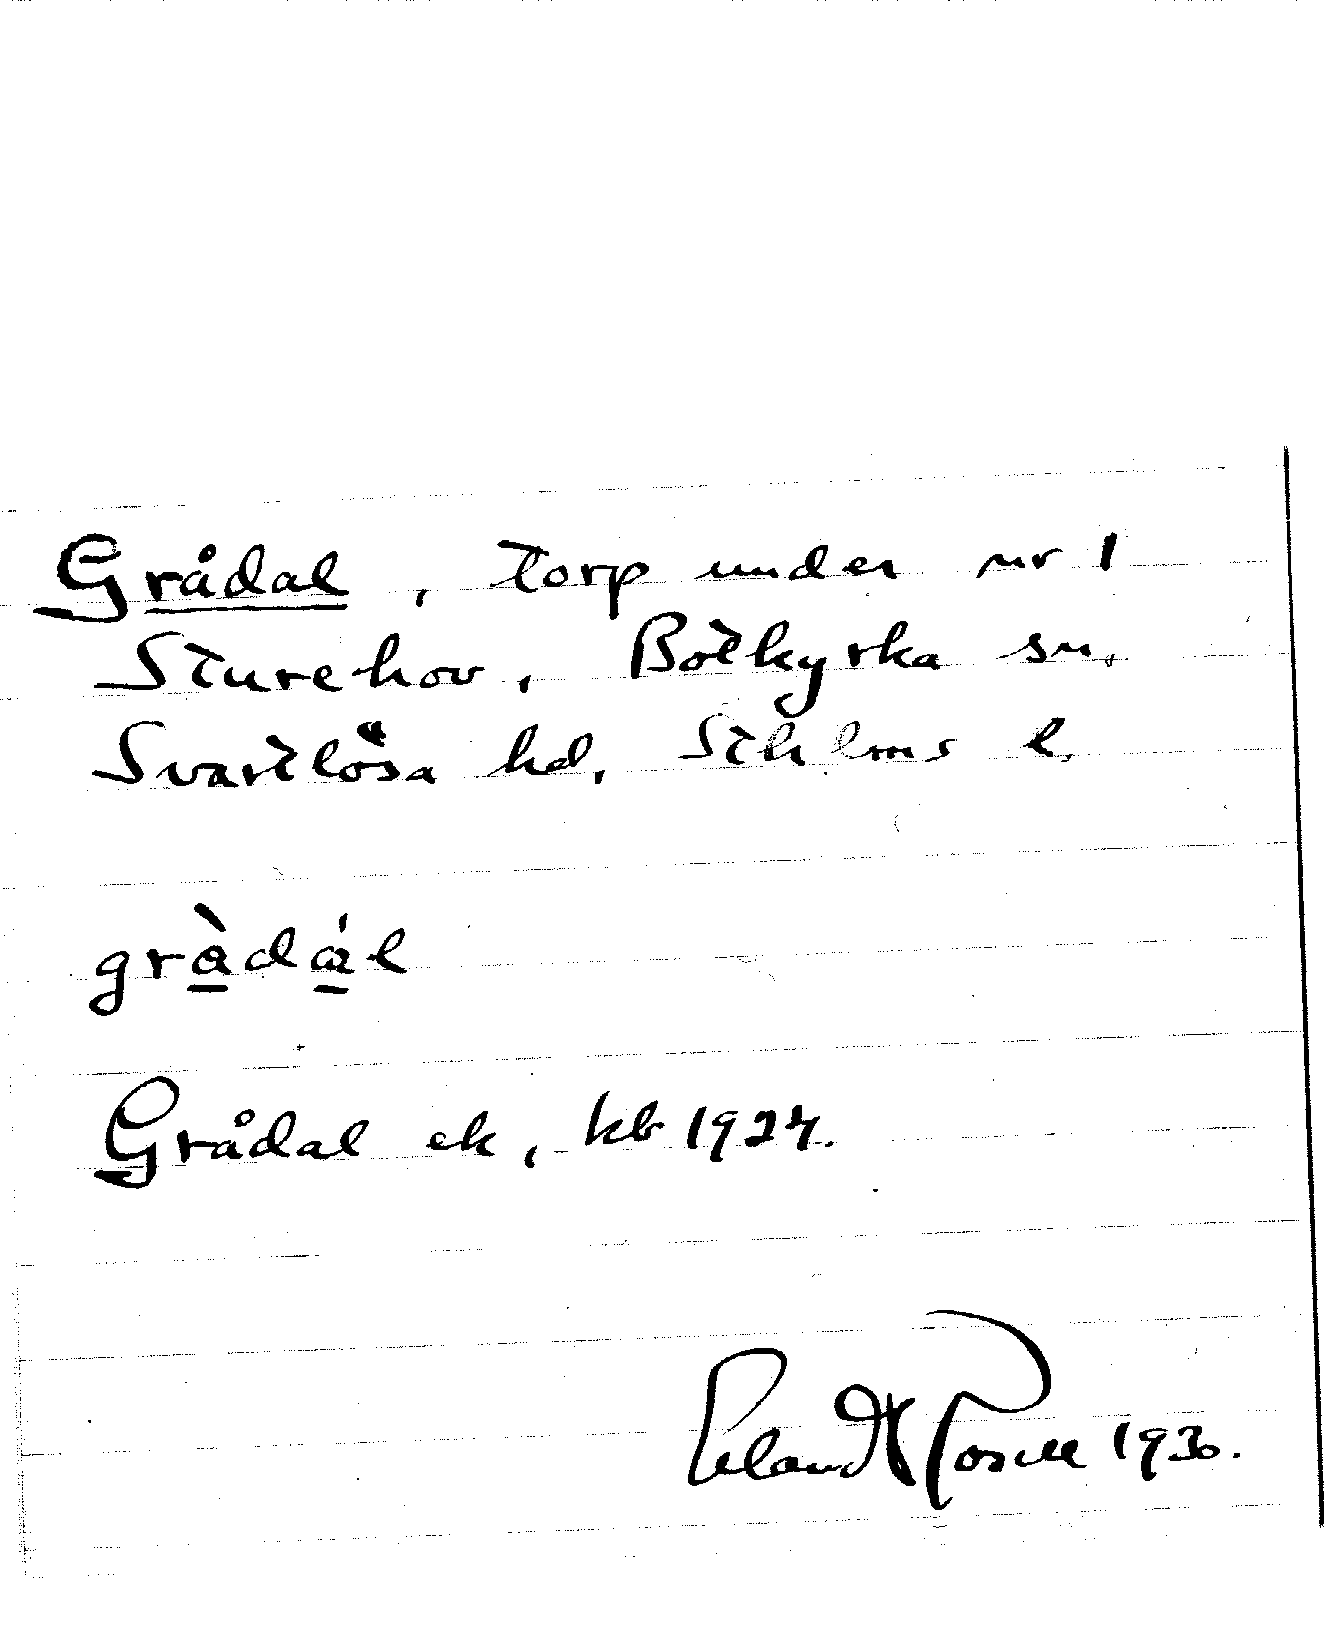 Grådal, torp under nr 1
Sturehov, Botkyrka sn.
Svartlösa hd. Sthlms l.
gràdál
Grådal ek, kb 1927.
Erland Rosell 1930.